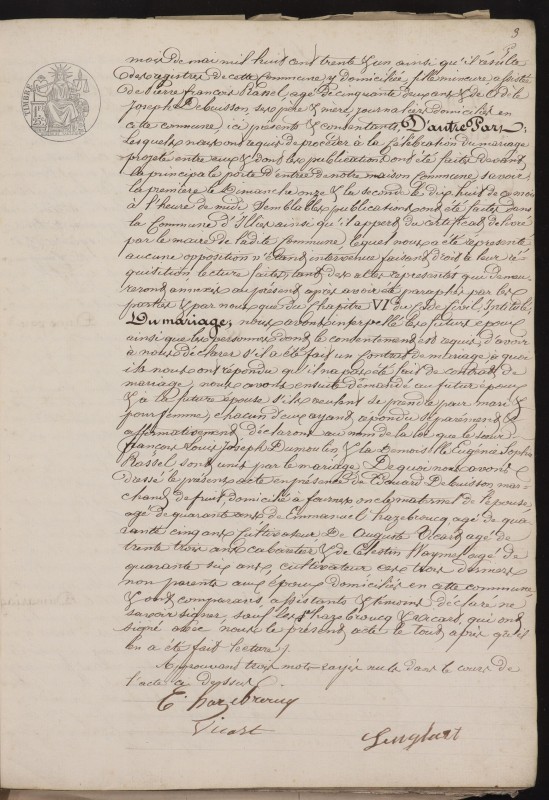 3
mois de mai mil huit cent trente & un ainsi qu'il résulte
des registres de cette commune, y domiciliée, fille mineure assistée
de Pierre françois Rassel, agé de cinquante deux ans & de Odile
joseph Debuisson, ses père & mère, journaliers domiciliés en
cette commune, ici présents & consentants, D'autre Part;
Lesquels nous ont requis de procéder à la célébration du mariage
projeté entre eux & dont les publications ont été faites devant
la principale porte d'entrée de notre maison commune, savoir:
la première le Dimanche onze & la seconde le dix huit de ce mois
à l'heure de midi, Semblables publications ont été faites dans
la Commune d'Illies ainsi qu'il appert du certificat délivré
par le maire de ladite Commune, lequel nous a été représenté;
aucune opposition n'étant intervenue faisant droit à leur ré-
quisition, lecture faite, tant des actes représentés qui demeu-
reront annexés au présent après avoir été paraphés par les
parties & par nous que du Chapitre VI du Code Civil, Intitulé:
Du mariage, nous avons interpellé les futurs époux
ainsi que les personnes dont le consentement est requis, d'avoir
à nous déclarer s'il a été fait un contrat de mariage, à quoi
ils nous ont répondu qu'il n'a pas été fait de contrat de
mariage, nous avons ensuite demandé au futur époux
& à la future épouse s'ils veulent se prendre pour mari &
pour femme, chacun d'eux ayant répondu séparément &
affirmativement, déclarons au nom de la loi que le sieur
françois Louis Joseph Dumoulin & la Demoiselle Eugénie Sophie
Rassel sont unis par le mariage. De quoi nous avons
dressé le présent acte en présence de Edouard Debuisson, mar-
chand de fruit, domicilié à fournes, oncle maternel de l'épouse,
agé de quarante ans, de Emmanuel hazebroucq, agé de qua-
rante cinq ans, Cultivateur, De Auguste Vicart, agé de
trente trois ans, Cabaretier & de Célestin Waymel, agé de
quarante six ans, cultivateur, ces trois derniers
non parents aux époux domiciliés en cette commune
& ont comparants, assistants & témoins déclaré ne
savoir signer, sauf les Srs hazebroucq & Vicart, qui ont
signé avec nous le présent acte le tout après qu'il
en a été fait lecture;
Approuvant trois mots rayés nuls dans le cours de
l'acte ci dessus.
E. hazebroucq
Vicart